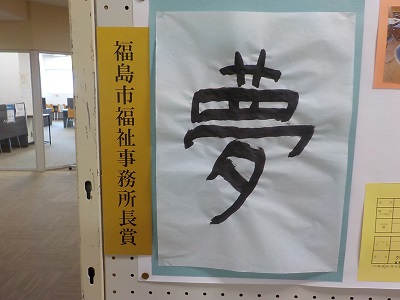 福島市福祉事務所長賞
夢